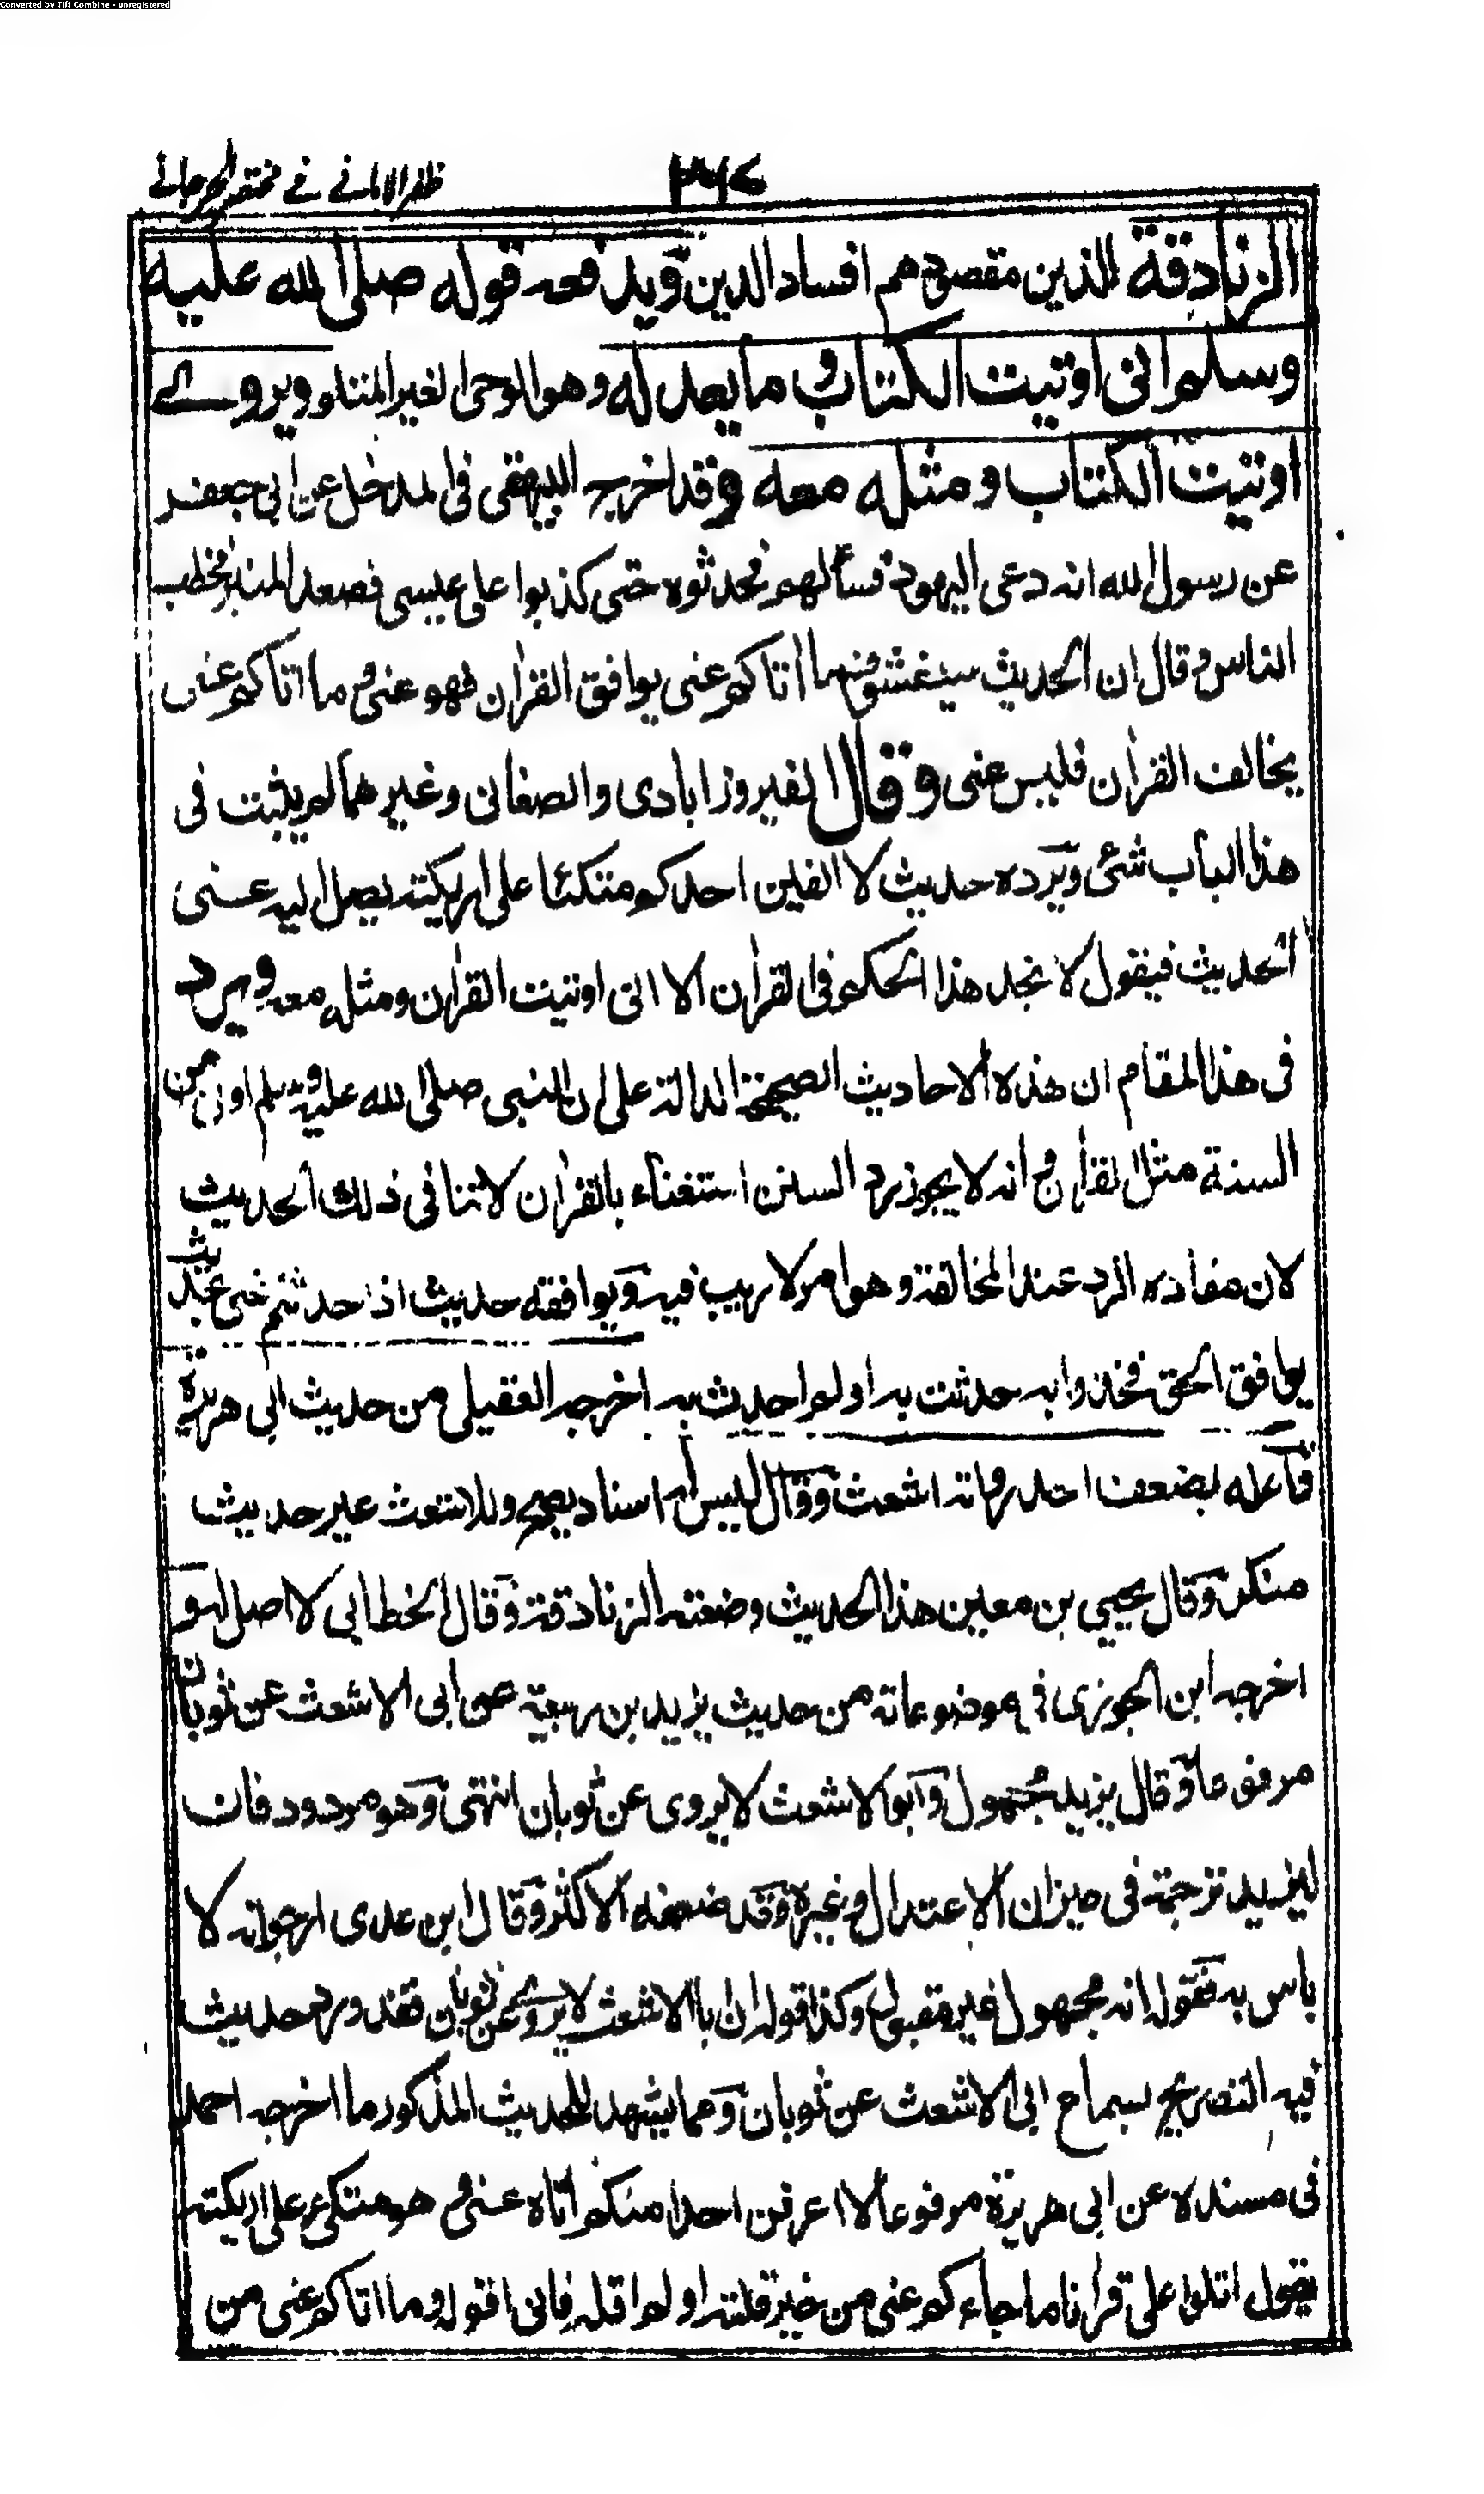 Converted by Tiff Combine - unregistered
ظفر الامانے فے مختصر الجرجانے
٢٦٧
الزنادقة الذين مقصدهم افساد الدين ويدفعه قوله صلى الله عليه
وسلم انى اوتيت الكتاب وما يعدله وهو الوحى الغير المتلو ويروے
اوتيت الكتاب ومثله معه وقد اخرج البيهقى فى المدخل عن ابى جعفر
عن رسول الله انه دعى اليهود فسألهم فحدثوه حتى كذبوا على عيسى فصعد المنبر فخطب
الناس وقال ان الحديث سيفشو فما اتاكم عنى يوافق القرأن فهو عنى وما اتاكم عنى
يخالف القرأن فليس عنى وقال الفيروزابادى والصغانى وغيرهما لم يثبت فى
هذا الباب شئ ويرده حديث لا الفين احدكم متكئا على اريكته يصل اليه عنى
الحديث فيقول لا نجد هذا الحكم فى القرأن الا انى اوتيت القرأن ومثله معه ويرد
فى هذا المقام ان هذه الاحاديث الصحيحة الدالة على ان النبى صلى الله عليه وسلم اوتى من
السنة مثل القرأن وانه لا يجوز رد السنن استغناء بالقرأن لا تنافى ذلك الحديث
لان مفاده الرد عند المخالفة وهو امر لا ريب فيه ويوافقه حديث اذا حدثتم عنى بحديث
يوافق الحق فخذوا به حدثت به او لم احدث به اخرجه العقيلى من حديث ابى هريرة
فاعله بضعف احد رواته اشعث وقال ليس له اسناد يصح وللاشعث غير حديث
منكر وقال يحيي بن معين هذا الحديث وضعته الزنادقة وقال الخطابى لا اصل له و
اخرجه ابن الجوزى فى موضوعاته من حديث يزيد بن ربيعة عن ابى الاشعث عن ثوبان
مرفوعا وقال يزيد مجهول وابو الاشعث لا يروى عن ثوبان انتهى وهو مردود فان
ليزيد ترجمة فى ميزان الاعتدال وغيره وقد ضعفه الاكثر وقال ابن عدى ارجو انه لا
باس به فقوله انه مجهول غير مقبول وكذا قوله ان ابا الاشعث لا يروى عن ثوبان فقد ورد حديث
فيه التصريح بسماع ابى الاشعث عن ثوبان ومما يشهد للحديث المذكور ما اخرجه احمد
فى مسنده عن ابى هريرة مرفوعا لا اعرفن احدا منكم اتاه عنى وهو متكئ على اريكته
يقول اتلوا على قرأنا ما جاءكم عنى من خير قلته او لم اقله فانى اقوله وما اتاكم عنى من